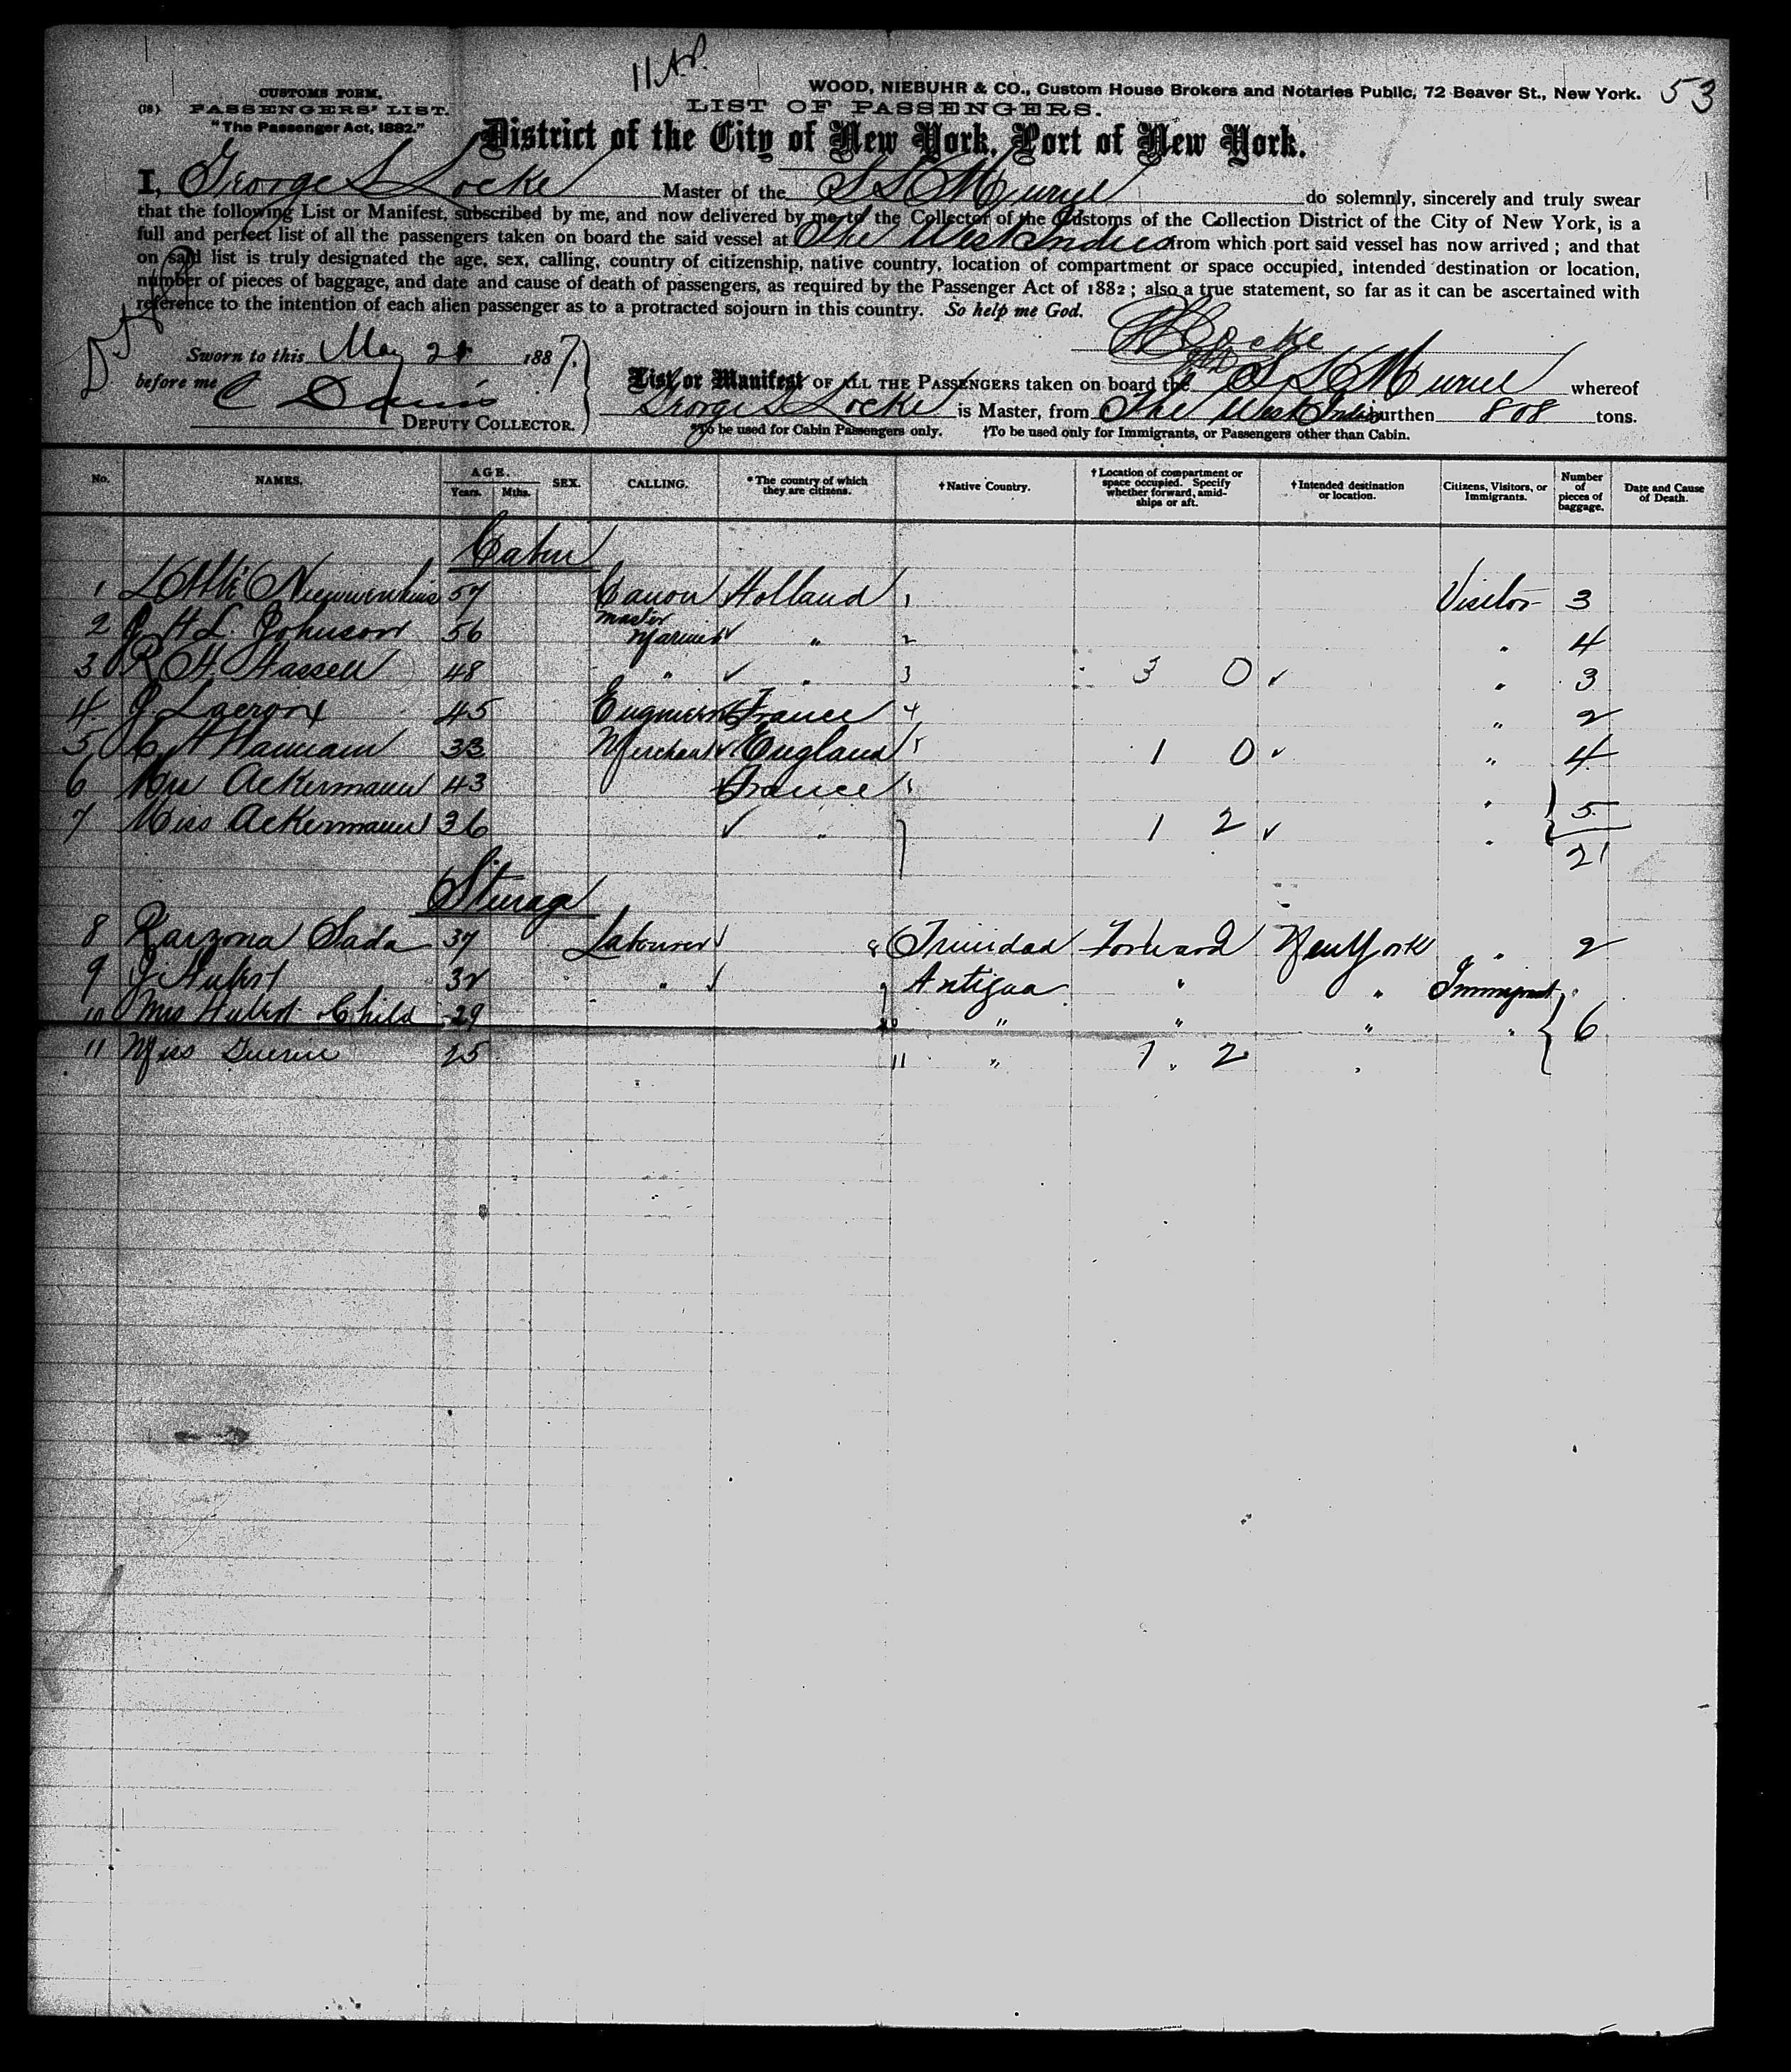 11 A.P.
WOOD, NIEBUHR & CO., Custom House Brokers and Notaries Public, 72 Beaver St., New York. 53
CUSTOMS FORM.
(18) PASSENGERS' LIST.
"The Passenger Act, 1882."
LIST OF PASSENGERS.
District of the City of New York, Port of New York.
I, George S Locke Master of the S S Muriel do solemnly, sincerely and truly swear
that the following List or Manifest, subscribed by me, and now delivered by me to the Collector of the Customs of the Collection District of the City of New York, is a
full and perfect list of all the passengers taken on board the said vessel at The West Indies from which port said vessel has now arrived; and that
on said list is truly designated the age, sex, calling, country of citizenship, native country, location of compartment or space occupied, intended destination or location,
number of pieces of baggage, and date and cause of death of passengers, as required by the Passenger Act of 1882; also a true statement, so far as it can be ascertained with
reference to the intention of each alien passenger as to a protracted sojourn in this country. So help me God.
Locke
Sworn to this May 21 1887.
before me C Davis
DEPUTY COLLECTOR.
List or Manifest OF ALL THE PASSENGERS taken on board the S S Muriel whereof
George S Locke is Master, from The West Indies burthen 808 tons.
*To be used for Cabin Passengers only. †To be used only for Immigrants, or Passengers other than Cabin.
No. NAMES. AGE. Years. Mths. SEX. CALLING. *The country of which they are citizens. †Native Country. †Location of compartment or space occupied. Specify whether forward, amidships or aft. †Intended destination or location. Citizens, Visitors, or Immigrants. Number of pieces of baggage. Date and Cause of Death.
Cabin
1 Nieuwenhuis 57 Canon Holland 1 Visitor 3
2 J H L. Johnson 56 Master Mariner ✓ " 2 " 4
3 R H Hassell 48 " ✓ " 3 3 0 ✓ " 3
4. J. Lacroix 45 Engineer France 4 " 2
5 C H Hamam 33 Merchant ✓ England 5 1 0 ✓ " 4
6 Mrs Ackermann 43 France " 5
7 Miss Ackermann 36 ✓ " 7 1 2 ✓ "
21
Steerage
8 Sada 37 Labourer 8 Trinidad Forward New York " 2
9 J Hubert 32 " 9 Antigua " " Immigrant
10 Mrs Hubert Child 29 10 " " " " 6
11 Miss 25 11 " 1 2 "